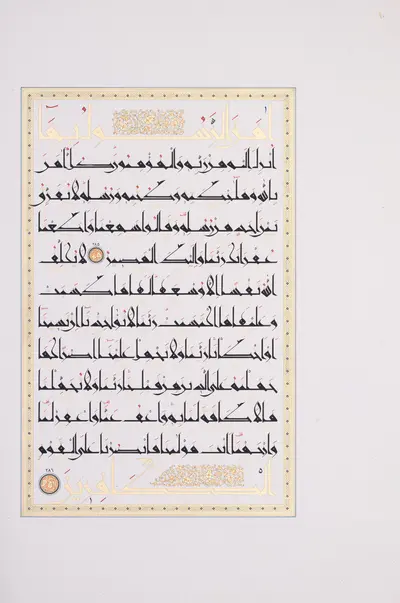 ءامن الرسول بما
انزل اليه من ربه والمؤمنون كل ءامن
بالله وملئكته وكتبه ورسله لا نفرق
بين احد من رسله وقالوا سمعنا واطعنا
غفرانك ربنا واليك المصير ٢٨٥ لا يكلف
الله نفسا الا وسعها لها ما كسبت
وعليها ما اكتسبت ربنا لا تؤاخذنا ان نسينا
او اخطأنا ربنا ولا تحمل علينا اصرا كما
حملته على الذين من قبلنا ربنا ولا تحملنا
ما لا طاقة لنا به واعف عنا واغفر لنا
وارحمنا انت مولنا فانصرنا على القوم
الكفرين ٢٨٦